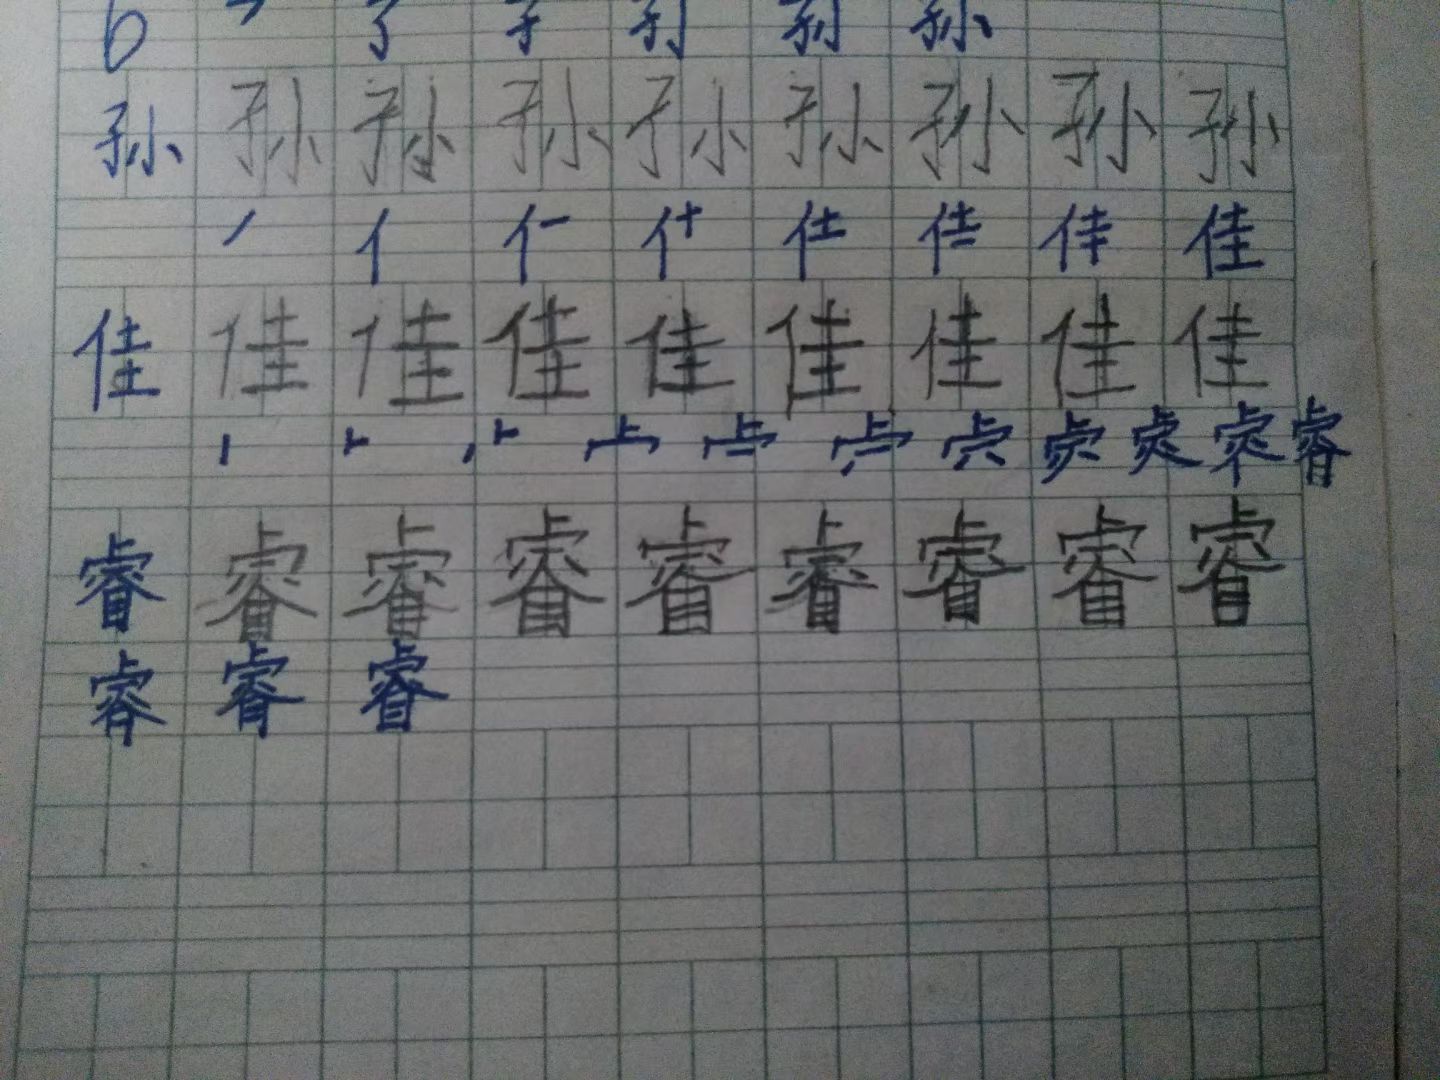 6 ㇇ 了 子 孑 孙 孙
孙 孙 孙 孙 孙 孙 孙 孙 孙
丿 亻 仁 什 仕 佳 佳
佳 佳 佳 佳 佳 佳 佳 佳 佳
丨 ⺊ 睿
睿 睿 睿 睿 睿 睿 睿 睿 睿
睿 睿